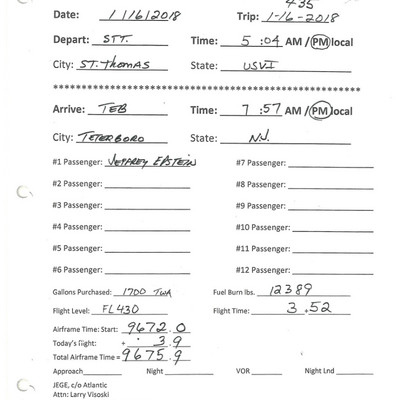 435
Date: 1/16/2018 Trip: 1-16-2018
Depart: STT. Time: 5:04 AM / PM local
City: ST. THOMAS State: USVI
Arrive: TEB Time: 7:57 AM / PM local
City: TETERBORO State: N.J.
#1 Passenger: JEFFREY EPSTEIN #7 Passenger:
#2 Passenger: #8 Passenger:
#3 Passenger: #9 Passenger:
#4 Passenger: #10 Passenger:
#5 Passenger: #11 Passenger:
#6 Passenger: #12 Passenger:
Gallons Purchased: 1700 TWA Fuel Burn lbs. 12389
Flight Level: FL430 Flight Time: 3+52
Airframe Time: Start: 9672.0
Today's flight: + 3.9
Total Airframe Time = 9675.9
Approach Night VOR Night Lnd
JEGE, c/o Atlantic
Attn: Larry Visoski